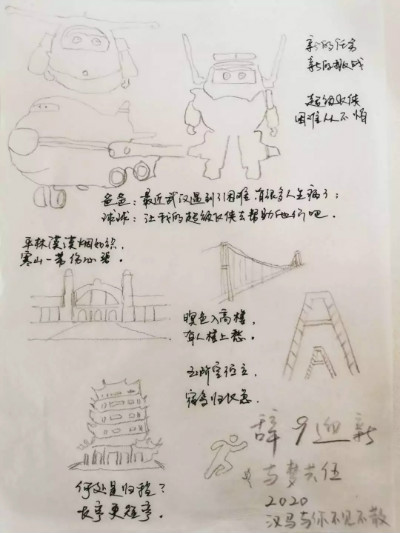 新的任务
新的挑战
超级飞侠
困难从不怕
爸爸：最近武汉遇到了困难，有很多人生病了；
诚诚：让我的超级飞侠去帮助他们吧。
平林漠漠烟如织，
寒山一带伤心碧。
暝色入高楼，
有人楼上愁。
玉阶空伫立，
宿鸟归飞急。
何处是归程？
长亭更短亭。
辞9迎新
与梦共伍
2020
汉马与你不见不散